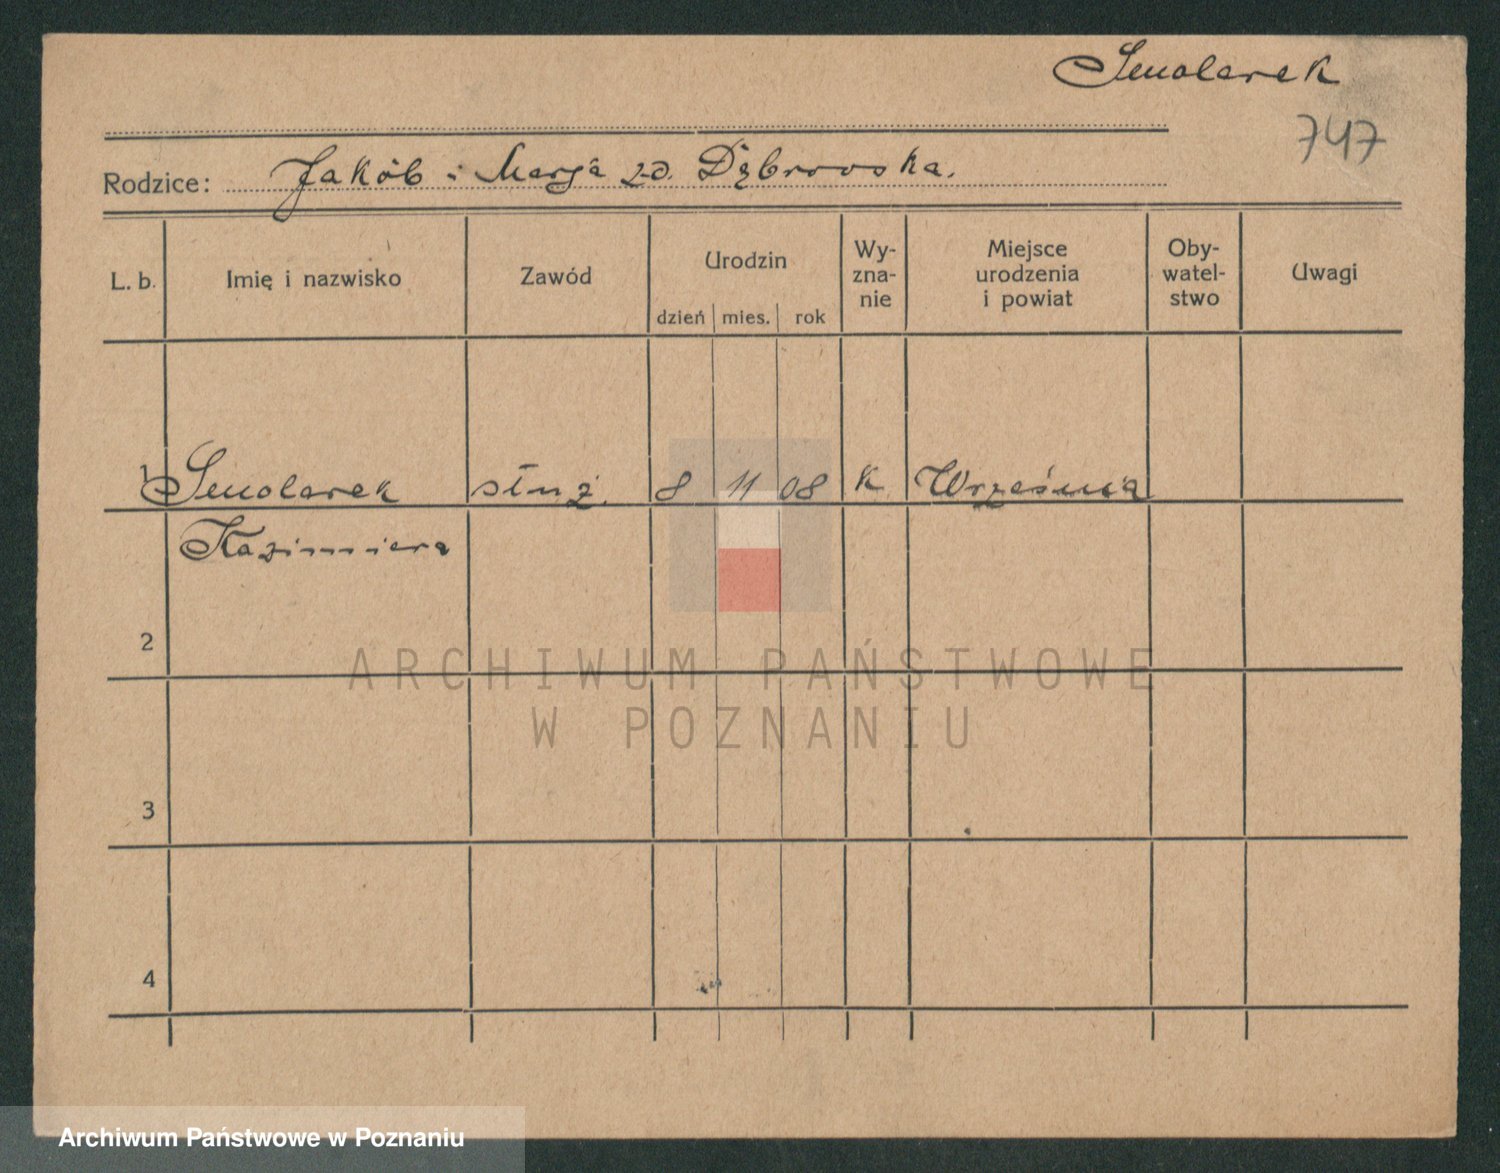 Smolarek
747
Rodzice: Jakób i Marja zd. Dąbrowska.
L. b. Imię i nazwisko Zawód Urodzin dzień mies. rok Wy-zna-nie Miejsce urodzenia i powiat Oby-watel-stwo Uwagi
1 Smolarek służ. 8 11 08 k Września
Kazimiera
2
ARCHIWUM PAŃSTWOWE
W POZNANIU
3
4
Archiwum Państwowe w Poznaniu